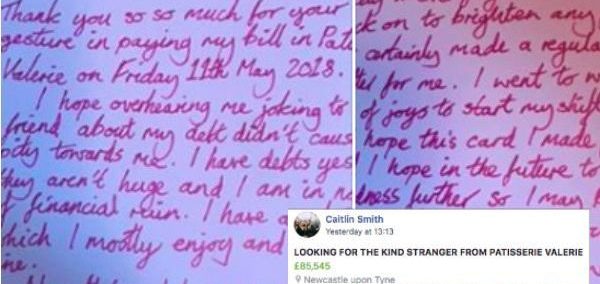 Thank you so so much for your
gesture in paying my bill in Pati
Valerie on Friday 11th May 2018.
I hope overhearing me joking to
friend about my debt didn't caus
ody towards me. I have debts yes
hey aren't huge and I am in n
f financial ruin. I have a
hich I mostly enjoy and
ne.
k on to brighten any
certainly made a regula
for me. I went to w
of joys to start my shift
hope this card I made
I hope in the future to
dness further so I may
Caitlin Smith
Yesterday at 13:13
LOOKING FOR THE KIND STRANGER FROM PATISSERIE VALERIE
£85,545
Newcastle upon Tyne